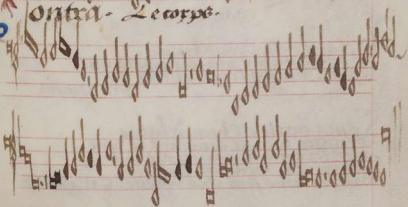 ontra. Le corps.